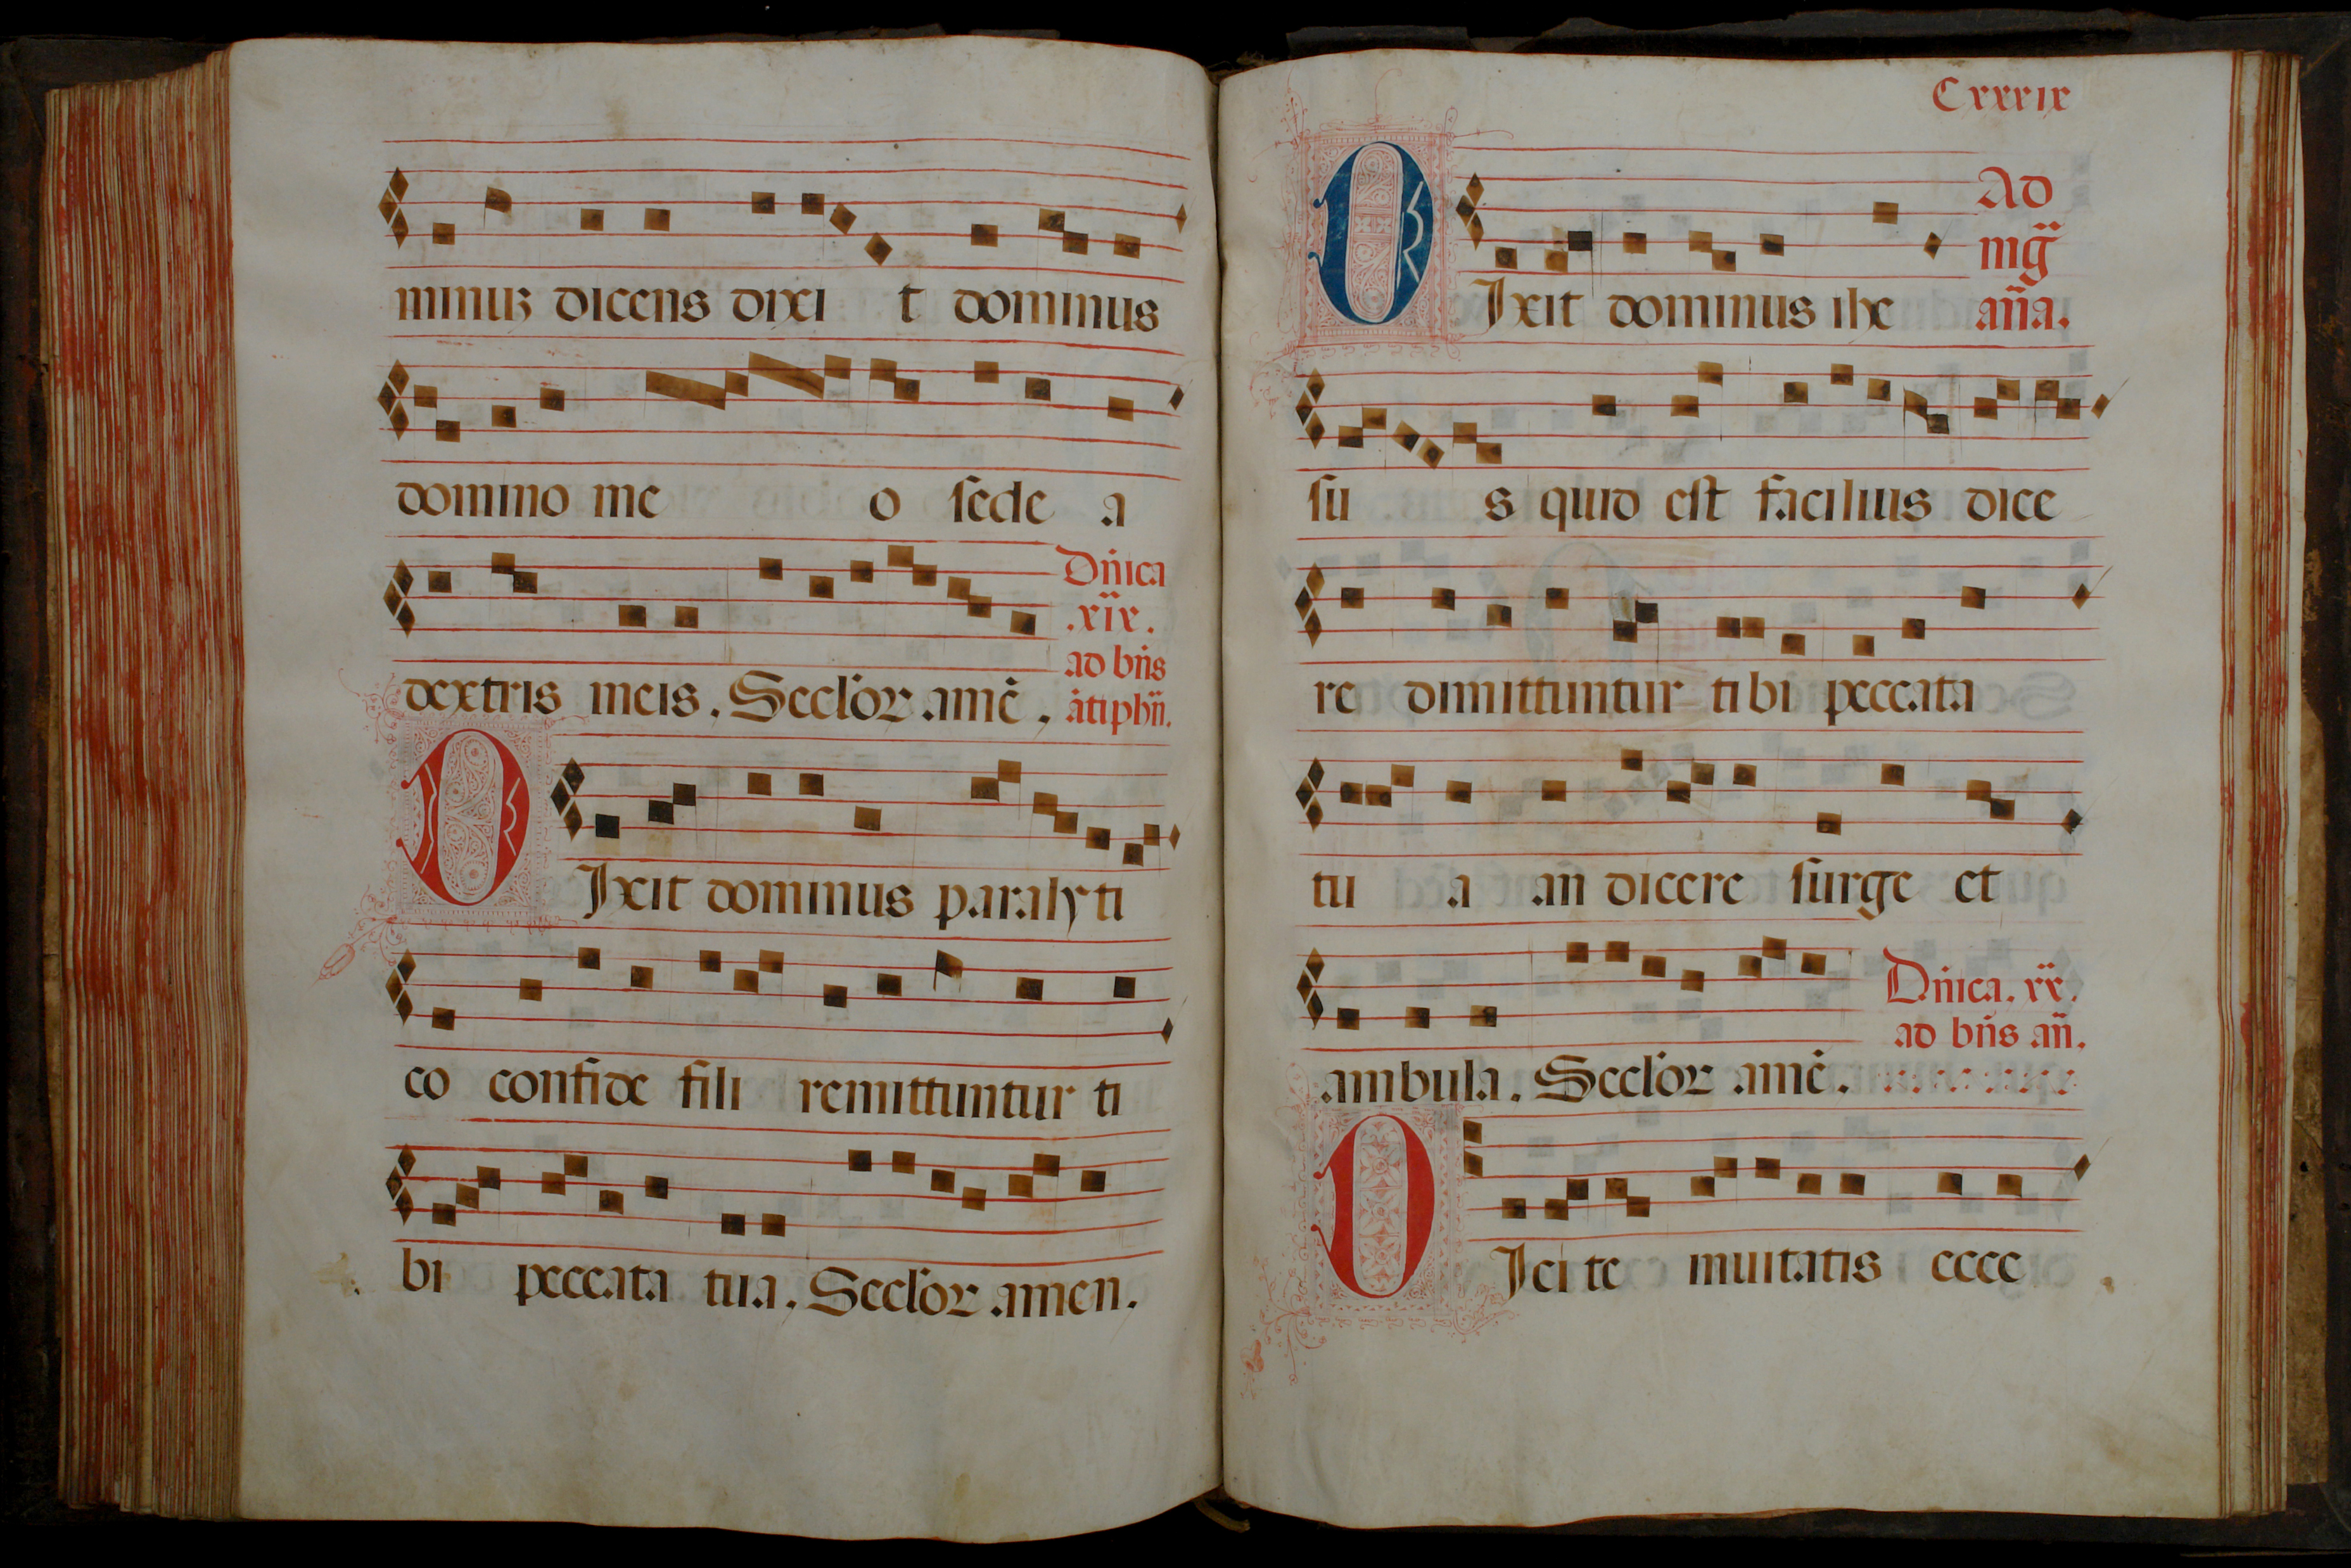 minus dicens dixi t dominus
domino me o sede a
Dñica
.xix.
ad bñs
dextris meis. Seclor amē. ātiphñ.
DIxit dominus paraly ti
co confide fili remittuntur ti
bi peccata tua. Seclor amen.
Cxxxix
Ad
mg̃
DIxit dominus ihe añа.
su s quid est facilius dice
re dimittuntur ti bi peccata
tu a an dicere surge et
Dñica. xx.
ad bñs añ.
ambula. Seclor amē.
DIci te inuitatis ecce